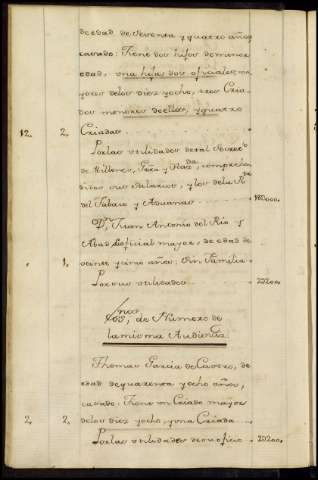 de edad de setenta y quatro años
casado. Tiene dos hijos de menor
edad, una hija dos oficiales ma
yores delos diez yocho, tres Cria
dos menores de ellos, y quatro
12. 2. Criadas
Por las utilidades de tal
de Millones, y compreen
didos sus salarios, y los de la R.ta
del Tabaco y Aduanas 180000.
D.n Juan Antonio del Rio y
Abad oficial mayor, de edad de
1. veinte y cinco años. Sin Familia
Por sus utilidades 2200.
SSnos, de Numero de
la misma Audiencia
Thomas Garcia de Castro, de
edad de quarenta yocho años,
casado. Tiene un Criado mayor
2. 2. delos diez yocho, y una Criada
Por las utilidades de su oficio 20200.